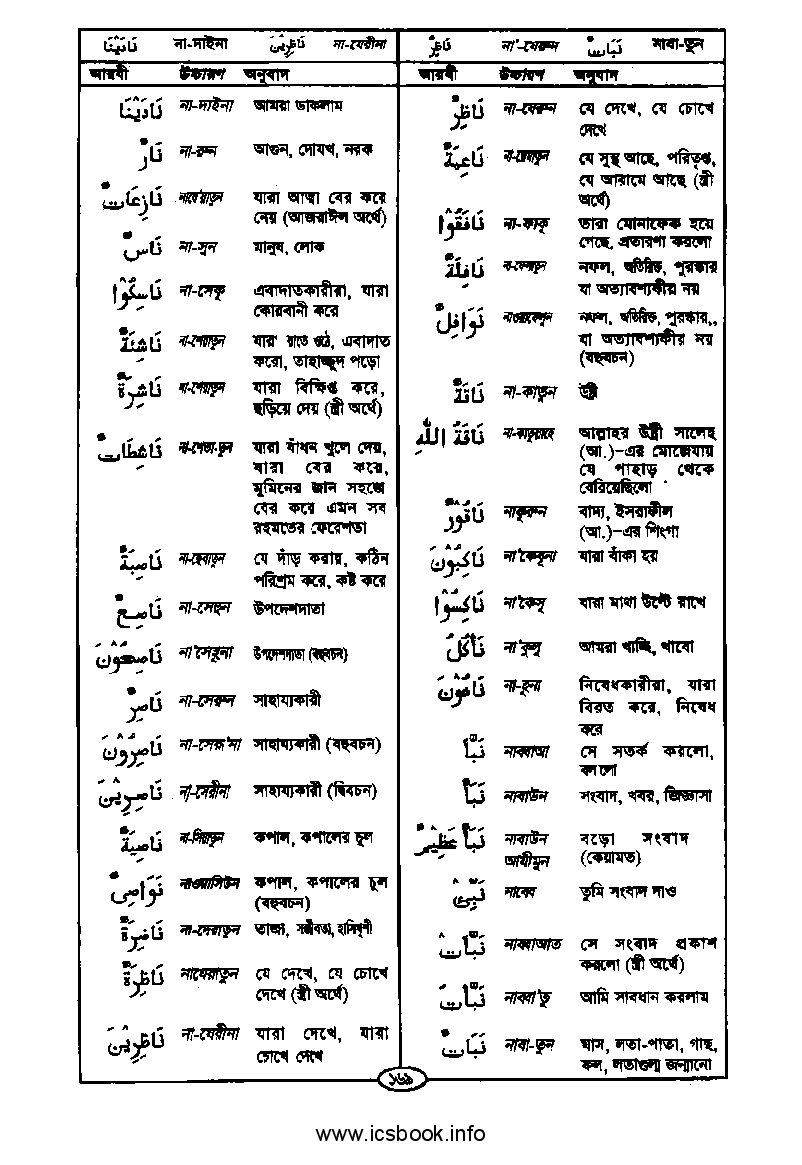 نَادَيْنَا না-দাইনা نَاظِرِيْنَ না-যেরীনা
আরবী উচ্চারণ অনুবাদ
نَادَيْنَا না-দাইনা আমরা ডাকলাম
نَارٌ না-রুন আগুন, দোযখ, নরক
نَازِعَاتٌ নাযে'য়াতুন যারা আত্মা বের করে
নেয় (আজরাঈল অর্থে)
نَاسٌ না-সুন মানুষ, লোক
نَاسِكُوْا না-সেকূ এবাদাতকারীরা, যারা
কোরবানী করে
نَاشِئَةٌ না-শেয়াতুন যারা রাতে ওঠে, এবাদাত
করে, তাহাজ্জুদ পড়ে
نَاشِرَةٌ না-শেরাতুন যারা বিক্ষিপ্ত করে,
ছড়িয়ে দেয় (স্ত্রী অর্থে)
نَاشِطَاتٌ না-শেতা-তুন যারা বাঁধন খুলে দেয়,
যারা বের করে,
মুমিনের জান সহজে
বের করে এমন সব
রহমতের ফেরেশতা
نَاصِبَةٌ না-ছেবাতুন যে দাঁড় করায়, কঠিন
পরিশ্রম করে, কষ্ট করে
نَاصِحٌ না-সেহুন উপদেশদাতা
نَاصِحُوْنَ না'সেহূনা উপদেশদাতা (বহুবচন)
نَاصِرٌ না-সেরুন সাহায্যকারী
نَاصِرُوْنَ না-সেরূ'না সাহায্যকারী (বহুবচন)
نَاصِرِيْنَ না-সেরীনা সাহায্যকারী (দ্বিবচন)
نَاصِيَةٌ না-সিয়াতুন কপাল, কপালের চুল
نَوَاصِىْ নাওয়াসিউন কপাল, কপালের চুল
(বহুবচন)
نَاضِرَةٌ না-দেরাতুন তাজা, সজীবতা, হাসিখুশী
نَاظِرَةٌ নাযেরাতুন যে দেখে, যে চোখে
দেখে (স্ত্রী অর্থে)
نَاظِرِيْنَ না-যেরীনা যারা দেখে, যারা
চোখে দেখে
نَاظِرٌ না'-যেরুন نَبَاتٌ নাবা-তুন
আরবী উচ্চারণ অনুবাদ
نَاظِرٌ না-যেরুন যে দেখে, যে চোখে
দেখে
نَاعِمَةٌ যে সুস্থ আছে, পরিতৃপ্ত,
যে আরামে আছে (স্ত্রী
অর্থে)
نَافَقُوْا না-ফাকূ তারা মোনাফেক হয়ে
গেছে, প্রতারণা করলো
نَافِلَةٌ না-ফেলাতুন নফল, অতিরিক্ত, পুরস্কার
যা অত্যাবশ্যকীয় নয়
نَوَافِلُ নাওয়াফেলুন নফল, অতিরিক্ত, পুরস্কার,,
যা অত্যাবশ্যকীয় নয়
(বহুবচন)
نَاقَةٌ না-কাতুন উষ্ট্রী
نَاقَةُ اللّٰهِ না-কাতুল্লাহে আল্লাহর উষ্ট্রী সালেহ
(আ.)-এর মোজেযায়
যে পাহাড় থেকে
বেরিয়েছিলো
نَاقُوْرٌ নাকূরুন বাদ্য, ইসরাফীল
(আ.)-এর শিংগা
نَاكِبُوْنَ না'কেবূনা যারা বাঁকা হয়
نَاكِسُوْا না'কেসূ যারা মাথা উল্টে রাখে
نَأْكُلُ না'কুলু আমরা খাচ্ছি, খাবো
نَاهُوْنَ না-হূনা নিষেধকারীরা, যারা
বিরত করে, নিষেধ
করে
نَبَّأَ নাব্বাআ সে সতর্ক করলো,
বললো
نَبَأٌ নাবাউন সংবাদ, খবর, জিজ্ঞাসা
نَبَأٌ عَظِيْمٌ নাবাউন বড়ো সংবাদ
আযীমুন (কেয়ামত)
نَبِّئْ নাব্বে তুমি সংবাদ দাও
نَبَّأَتْ নাব্বাআত সে সংবাদ প্রকাশ
করলো (স্ত্রী অর্থে)
نَبَّأْتُ নাব্বা'তু আমি সাবধান করলাম
نَبَاتٌ নাবা-তুন ঘাস, লতা-পাতা, গাছ,
ফল, লতাগুল্ম জন্মানো
১৬৯
www.icsbook.info